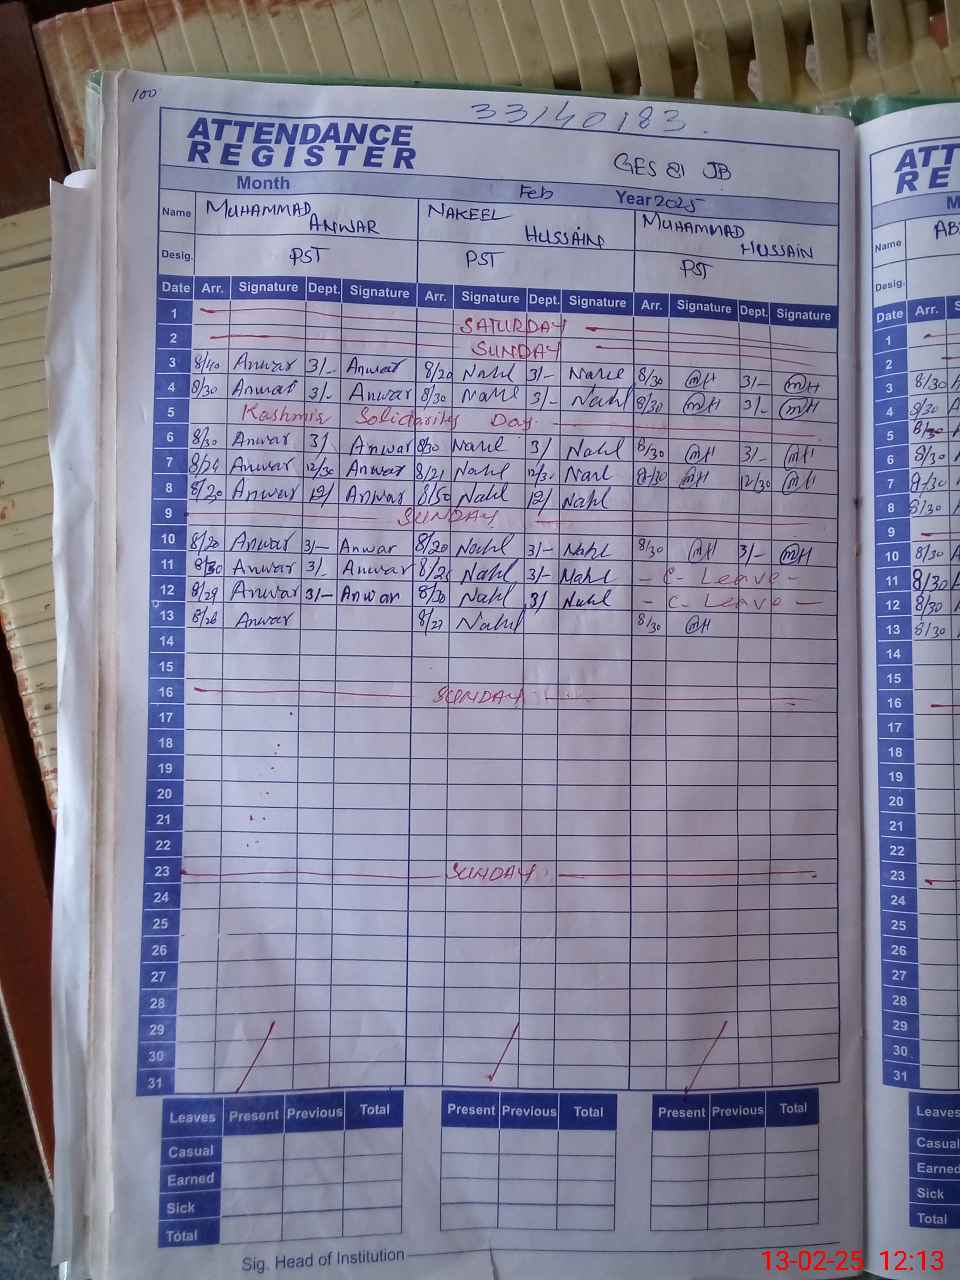 100
33140183.
ATTENDANCE
REGISTER
GES 81 JB
Month Feb Year 2025
Name MUHAMMAD ANWAR NAKEEL HUSSAIN MUHAMMAD HUSSAIN
Desig. PST PST PST
Date Arr. Signature Dept. Signature Arr. Signature Dept. Signature Arr. Signature Dept. Signature
1 SATURDAY
2 SUNDAY
3 8/40 Anwar 3/- Anwar 8/20 Nahl 3/- Nahl 8/30 MH 3/- MH
4 8/30 Anwar 3/- Anwar 8/30 Nahl 3/- Nahl 8/30 MH 3/- MH
5 Kashmir Solidarity Day
6 8/30 Anwar 3/ Anwar 8/30 Nahl 3/ Nahl 8/30 MH 3/- MH
7 Anwar 12/30 Anwar 8/21 Nahl Nahl 8/30 MH 12/30 MH
8 8/20 Anwar 12/ Anwar 8/50 Nahl 12/ Nahl
9 SUNDAY
10 8/20 Anwar 3/- Anwar 8/20 Nahl 3/- Nahl 8/30 MH 3/- MH
11 8/30 Anwar 3/- Anwar Nahl 3/- Nahl - C- Leave -
12 8/29 Anwar 3/- Anwar 8/20 Nahl 3/ Nahl - C- Leave -
13 8/26 Anwar 8/27 Nahl 8/30 MH
14
15
16 SUNDAY
17
18
19
20
21
22
23 SUNDAY
24
25
26
27
28
29
30
31
Leaves Present Previous Total Present Previous Total Present Previous Total
Casual
Earned
Sick
Total
Sig. Head of Institution
ATT
RE
M
Name AB
Desig.
Date Arr. S
1
2
3 8/30 A
4 8/30 A
5 8/30
6 8/30
7 8/30
8 8/30
9
10 8/30
11 8/30 A
12 8/30
13 8/30
14
15
16
17
18
19
20
21
22
23
24
25
26
27
28
29
30
31
Leaves
Casual
Earned
Sick
Total
13-02-25 12:13